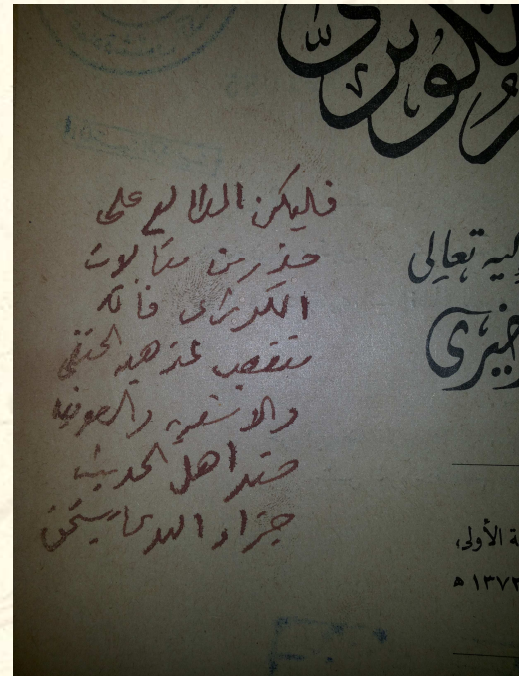 الكوثري
فليكن المطالع على
حذر من مقالات
الكوثري فانه
متعصب لمذهبه الحنفي
والاشعرية والصوفية
ضد اهل الحديث
جزاه الله بما يستحق
ليه تعالى
خيري
ة الأولى
١٣٧٢ ه